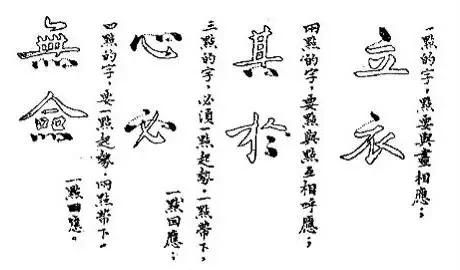 一點的字，點要與畫相應；
立衣
兩點的字，要點與點互相呼應；
其於
三點的字，必須一點起勢，一點帶下，
一點回應；
心必
四點的字，要一點起勢，兩點帶下。
一點回應。
無僉